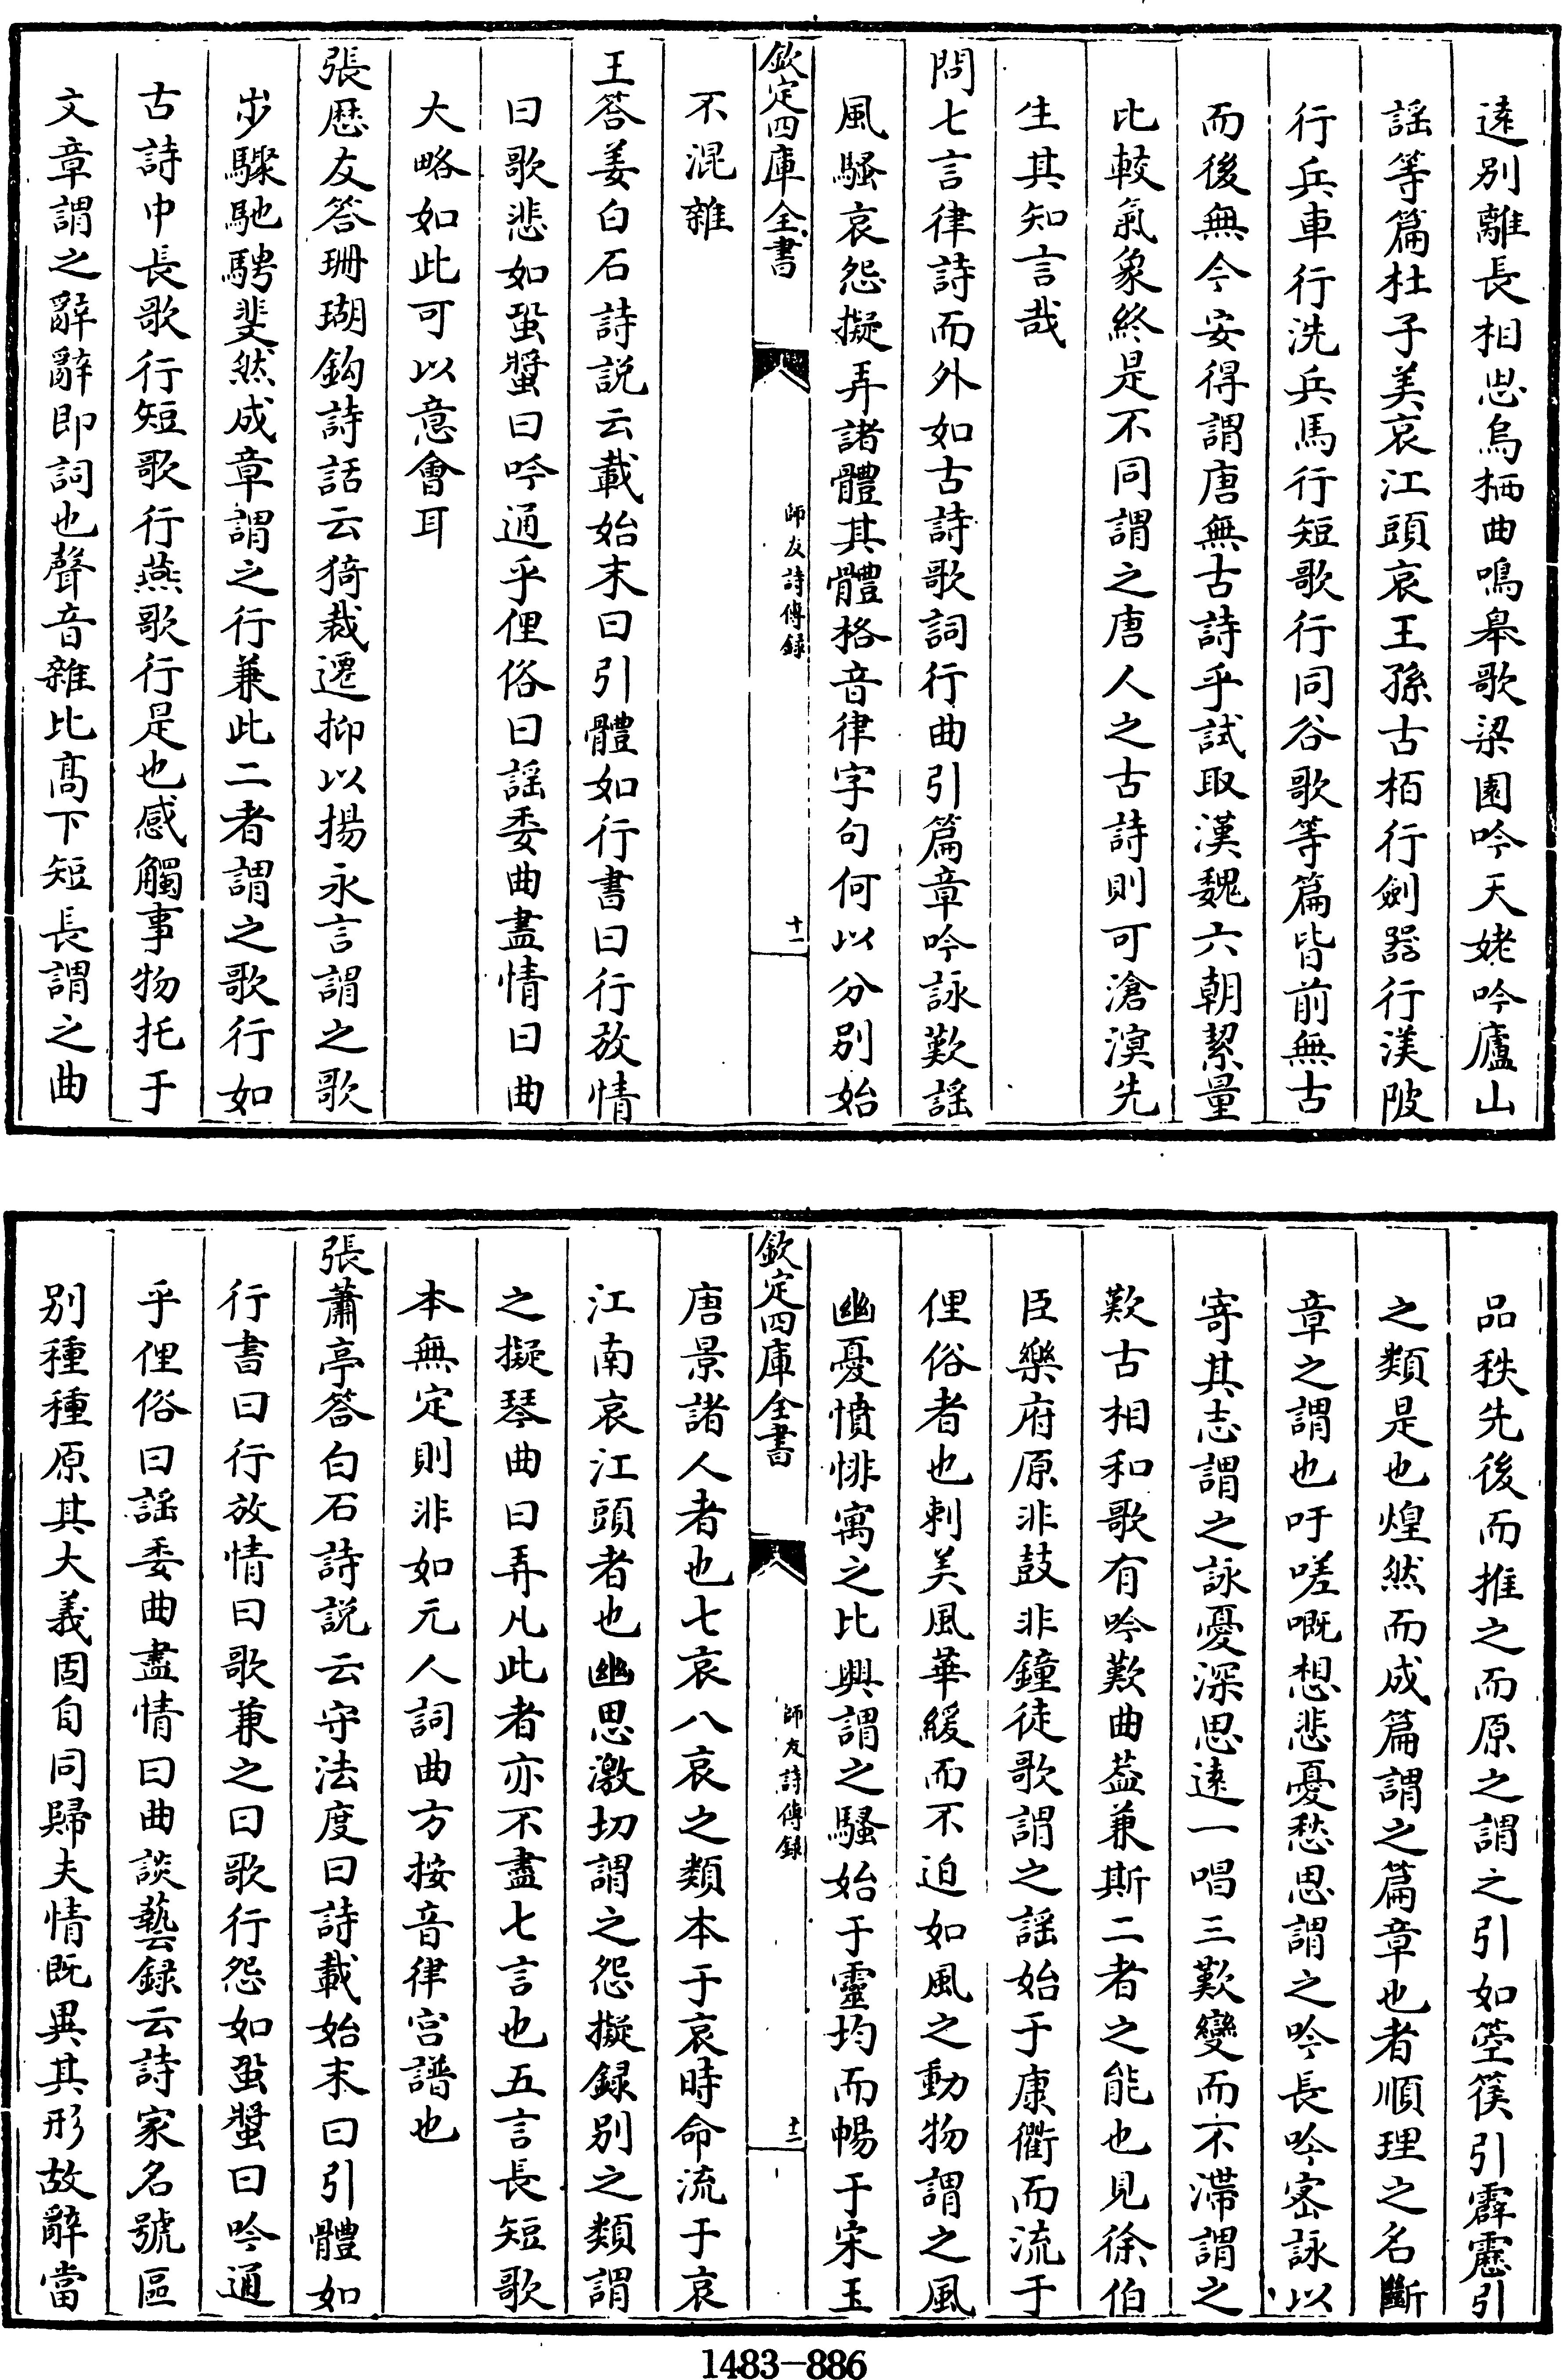 遠别離長相思烏栖曲鳴臯歌梁園吟天姥吟廬山
謡等篇杜子美哀江頭哀王孫古栢行劍器行渼陂
行兵車行洗兵馬行短歌行同谷歌等篇皆前無古
而後無今安得謂唐無古詩乎試取漢魏六朝絜量
比較氣象終是不同謂之唐人之古詩則可滄溟先
生其知言哉
問七言律詩而外如古詩歌詞行曲引篇章吟詠歎謡
風騷哀怨擬弄諸體其體格音律字句何以分别始
欽定四庫全書
師友詩傳録
十一
不混雜
王答姜白石詩説云載始末曰引體如行書曰行放情
曰歌悲如蛩螿曰吟通乎俚俗曰謡委曲盡情曰曲
大略如此可以意會耳
張歴友答珊瑚鈎詩話云猗裁遷抑以揚永言謂之歌
步驟馳騁斐然成章謂之行兼此二者謂之歌行如
古詩中長歌行短歌行燕歌行是也感觸事物托于
文章謂之辭辭即詞也聲音雜比髙下短長謂之曲
品秩先後而推之而原之謂之引如箜篌引霹靂引
之類是也煌然而成篇謂之篇章也者順理之名斷
章之謂也吁嗟嘅想悲憂愁思謂之吟長吟宻詠以
寄其志謂之詠憂深思遠一唱三歎變而不滯謂之
歎古相和歌有吟歎曲葢兼斯二者之能也見徐伯
臣樂府原非鼓非鐘徒歌謂之謡始于康衢而流于
俚俗者也刺美風華緩而不迫如風之動物謂之風
幽憂憤悱寓之比興謂之騷始于靈均而暢于宋玉
欽定四庫全書
師友詩傳録
十二
唐景諸人者也七哀八哀之類本于哀時命流于哀
江南哀江頭者也幽思激切謂之怨擬録别之類謂
之擬琴曲曰弄凡此者亦不盡七言也五言長短歌
本無定則非如元人詞曲方按音律宫譜也
張蕭亭答白石詩説云守法度曰詩載始末曰引體如
行書曰行放情曰歌兼之曰歌行怨如蛩螿曰吟通
乎俚俗曰謡委曲盡情曰曲談藝録云詩家名號區
别種種原其大義固自同歸夫情既異其形故辭當
1483-886